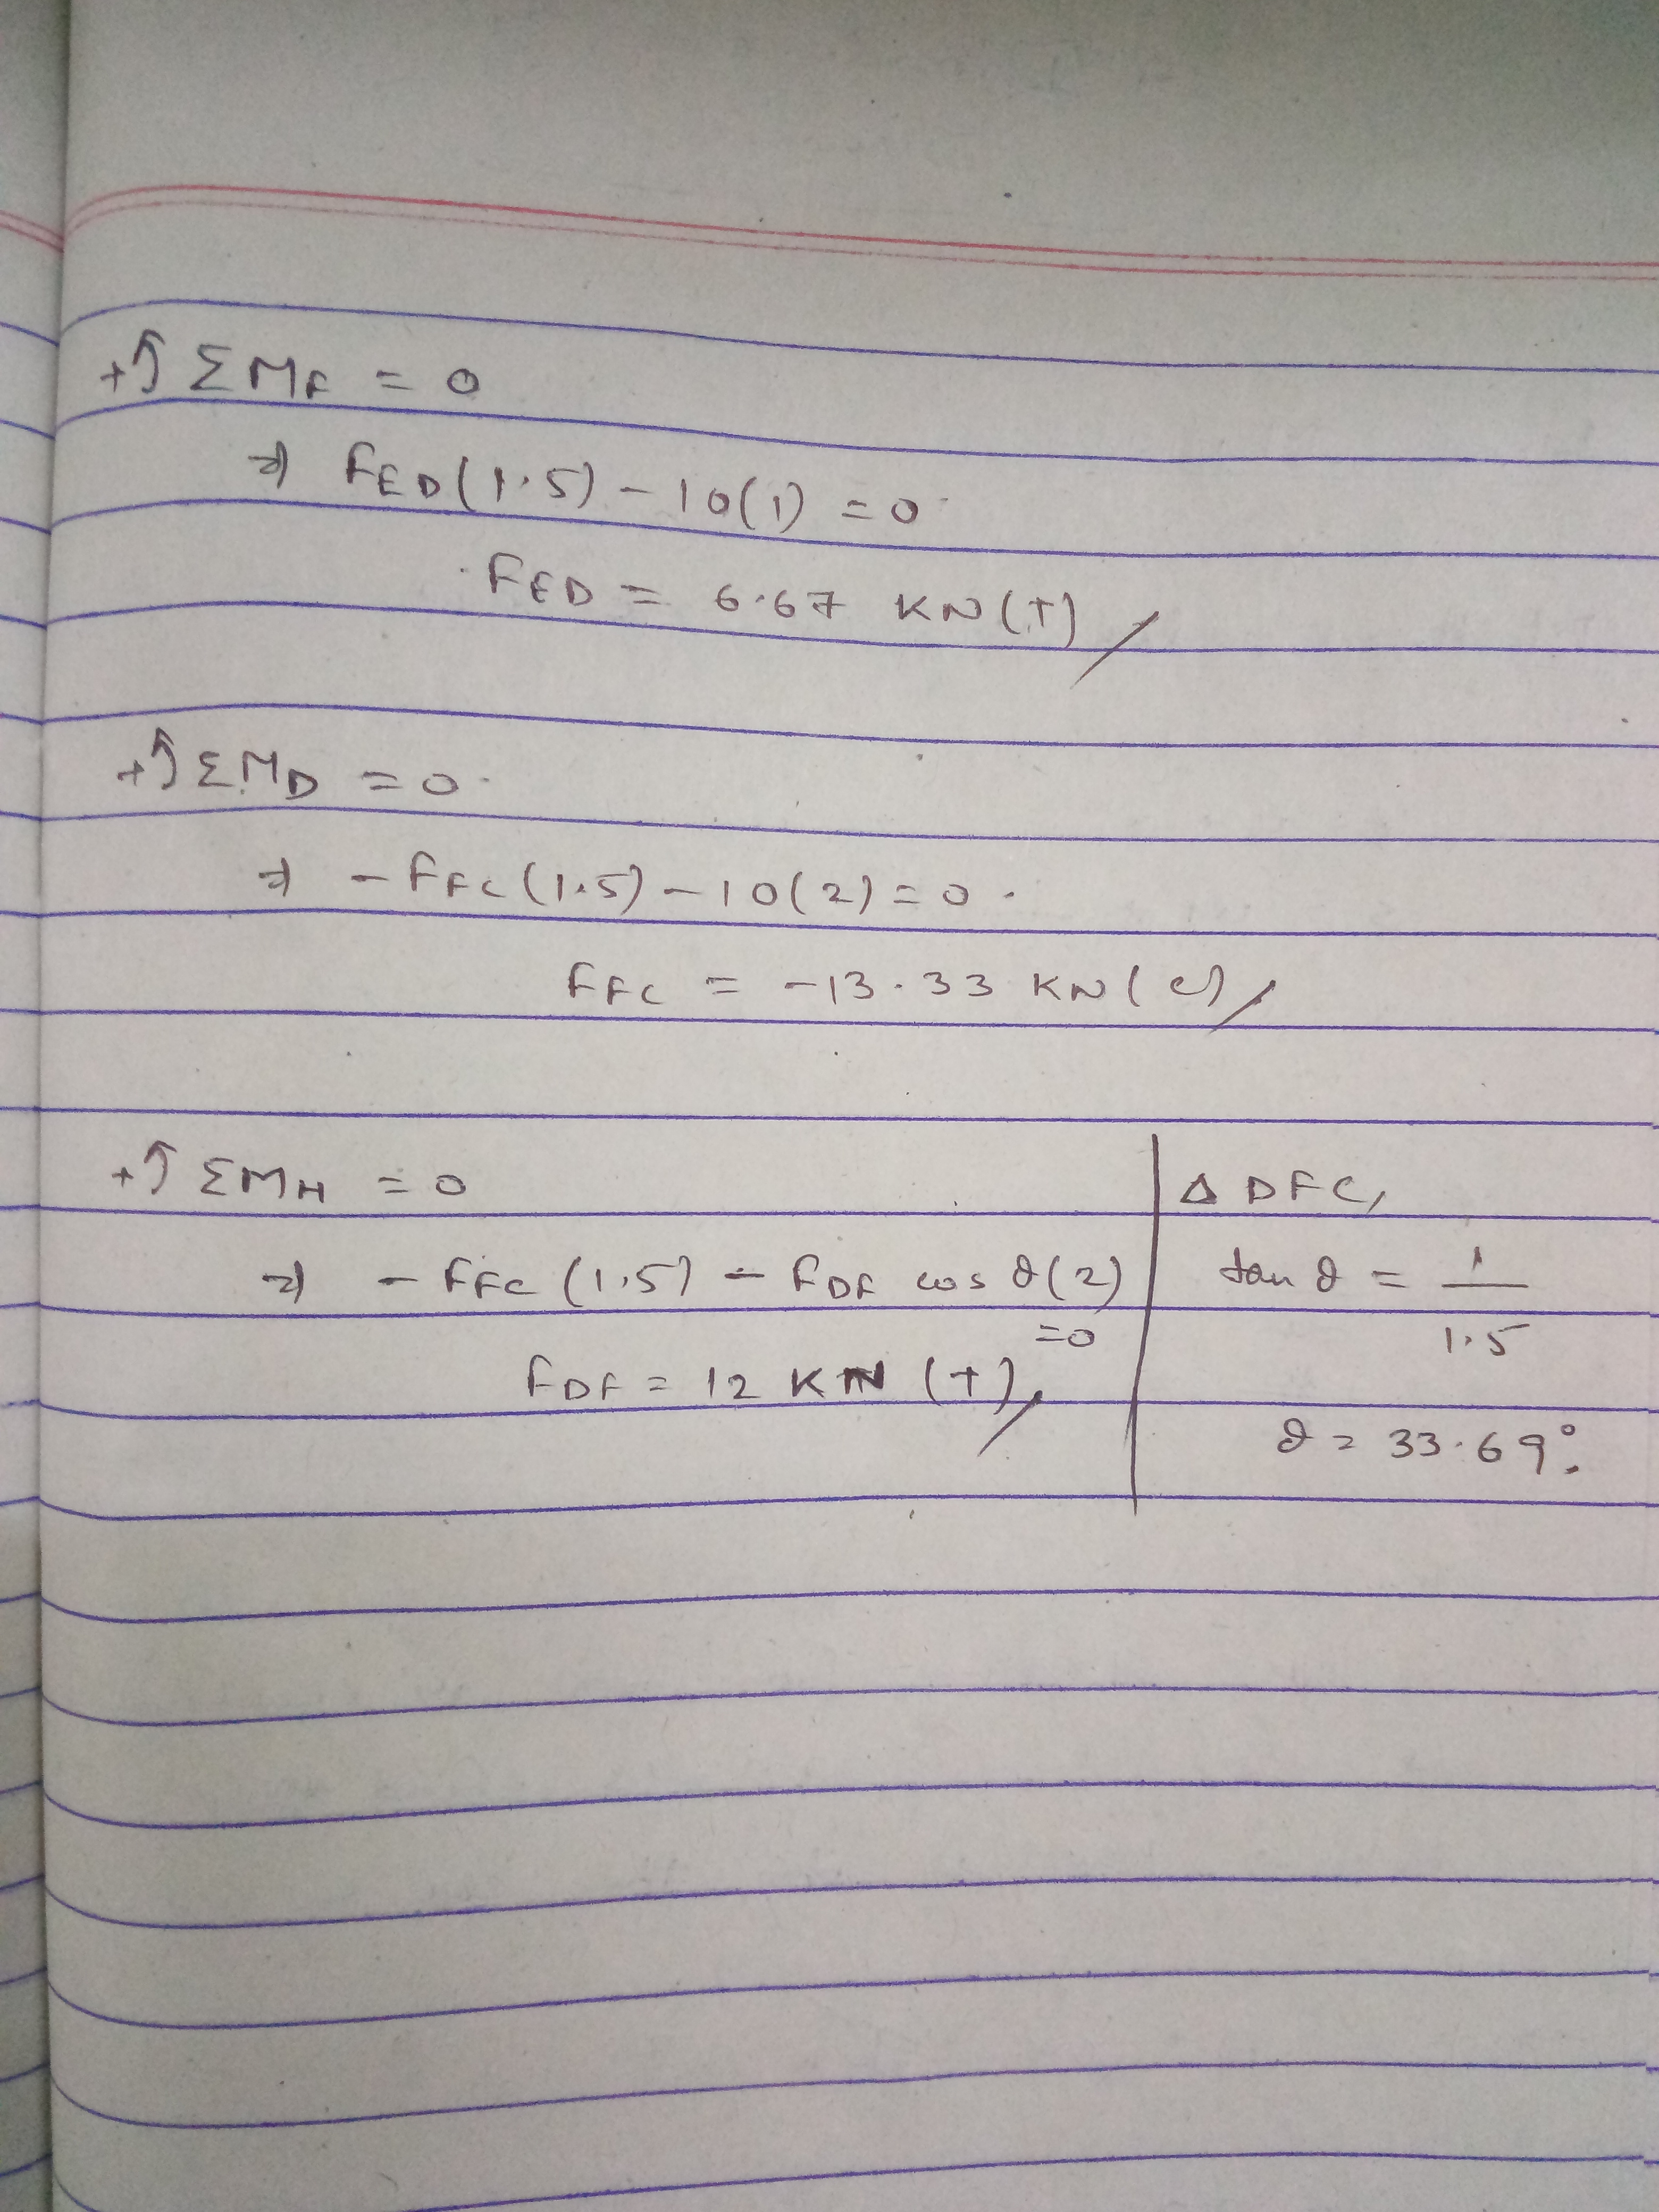 +↺ ΣM_F = 0
⇒ F_ED (1.5) - 10(1) = 0
F_ED = 6.67 KN (T)
+↺ ΣM_D = 0
⇒ - F_FC (1.5) - 10(2) = 0
F_FC = -13.33 KN (C)
+↺ ΣM_H = 0
⇒ - F_FC (1.5) - F_DF cos θ(2) = 0
F_DF = 12 KN (T)
Δ DFC,
tan θ = 1/1.5
θ = 33.69°